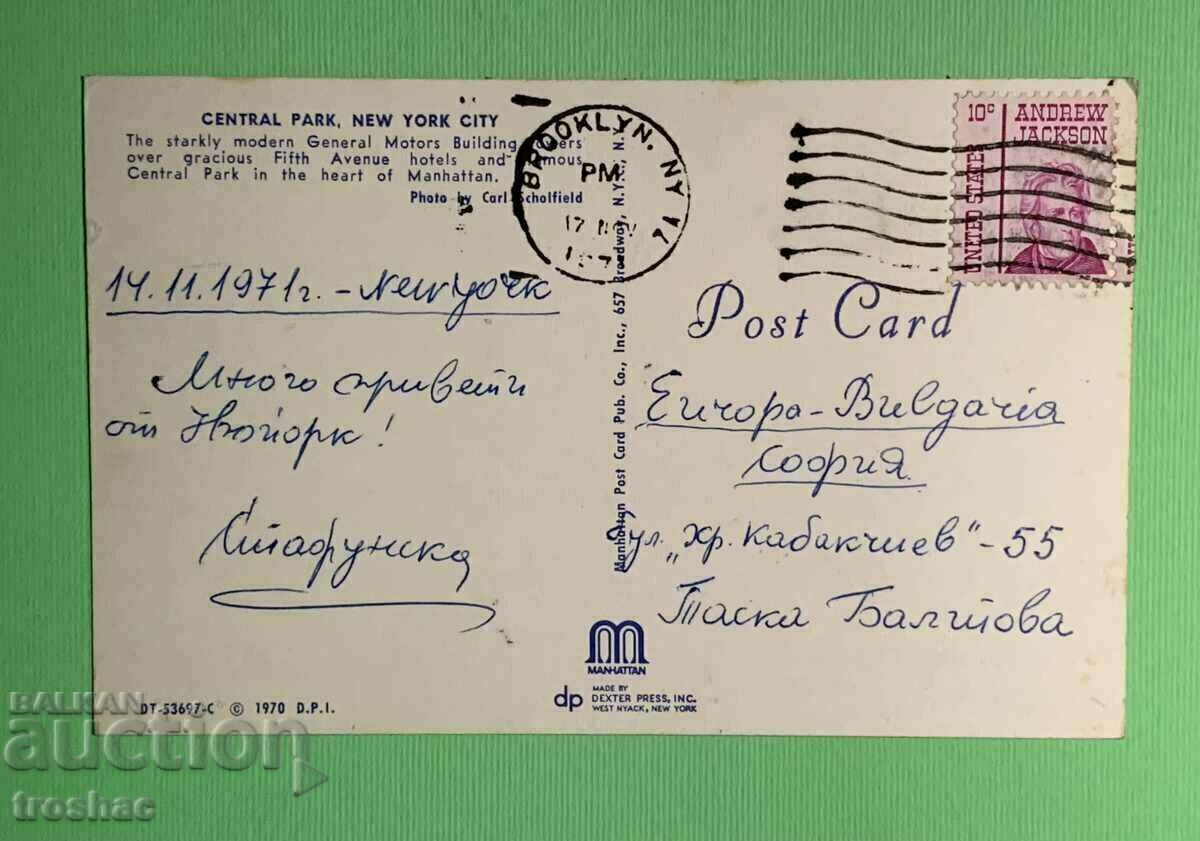 CENTRAL PARK, NEW YORK CITY
The starkly modern General Motors Building
over gracious Fifth Avenue hotels and
Central Park in the heart of Manhattan.
Photo by Carl Scholfield
BROOKLYN. NY
PM
17 NOV
10c ANDREW
JACKSON
UNITED STATES
14.11.1971г. - New york
Много привети
от Нюйорк!
Post Card
Manhattan Post Card Pub. Co., Inc., 657 Broadway, N.Y.
Европа - Bulgaria
София
ул. „Хр. Кабакчиев" - 55
Таска
MANHATTAN
dp MADE BY
DEXTER PRESS, INC.
WEST NYACK, NEW YORK
DT-53697-C © 1970 D.P.I.
BALKAN
auction
troshac